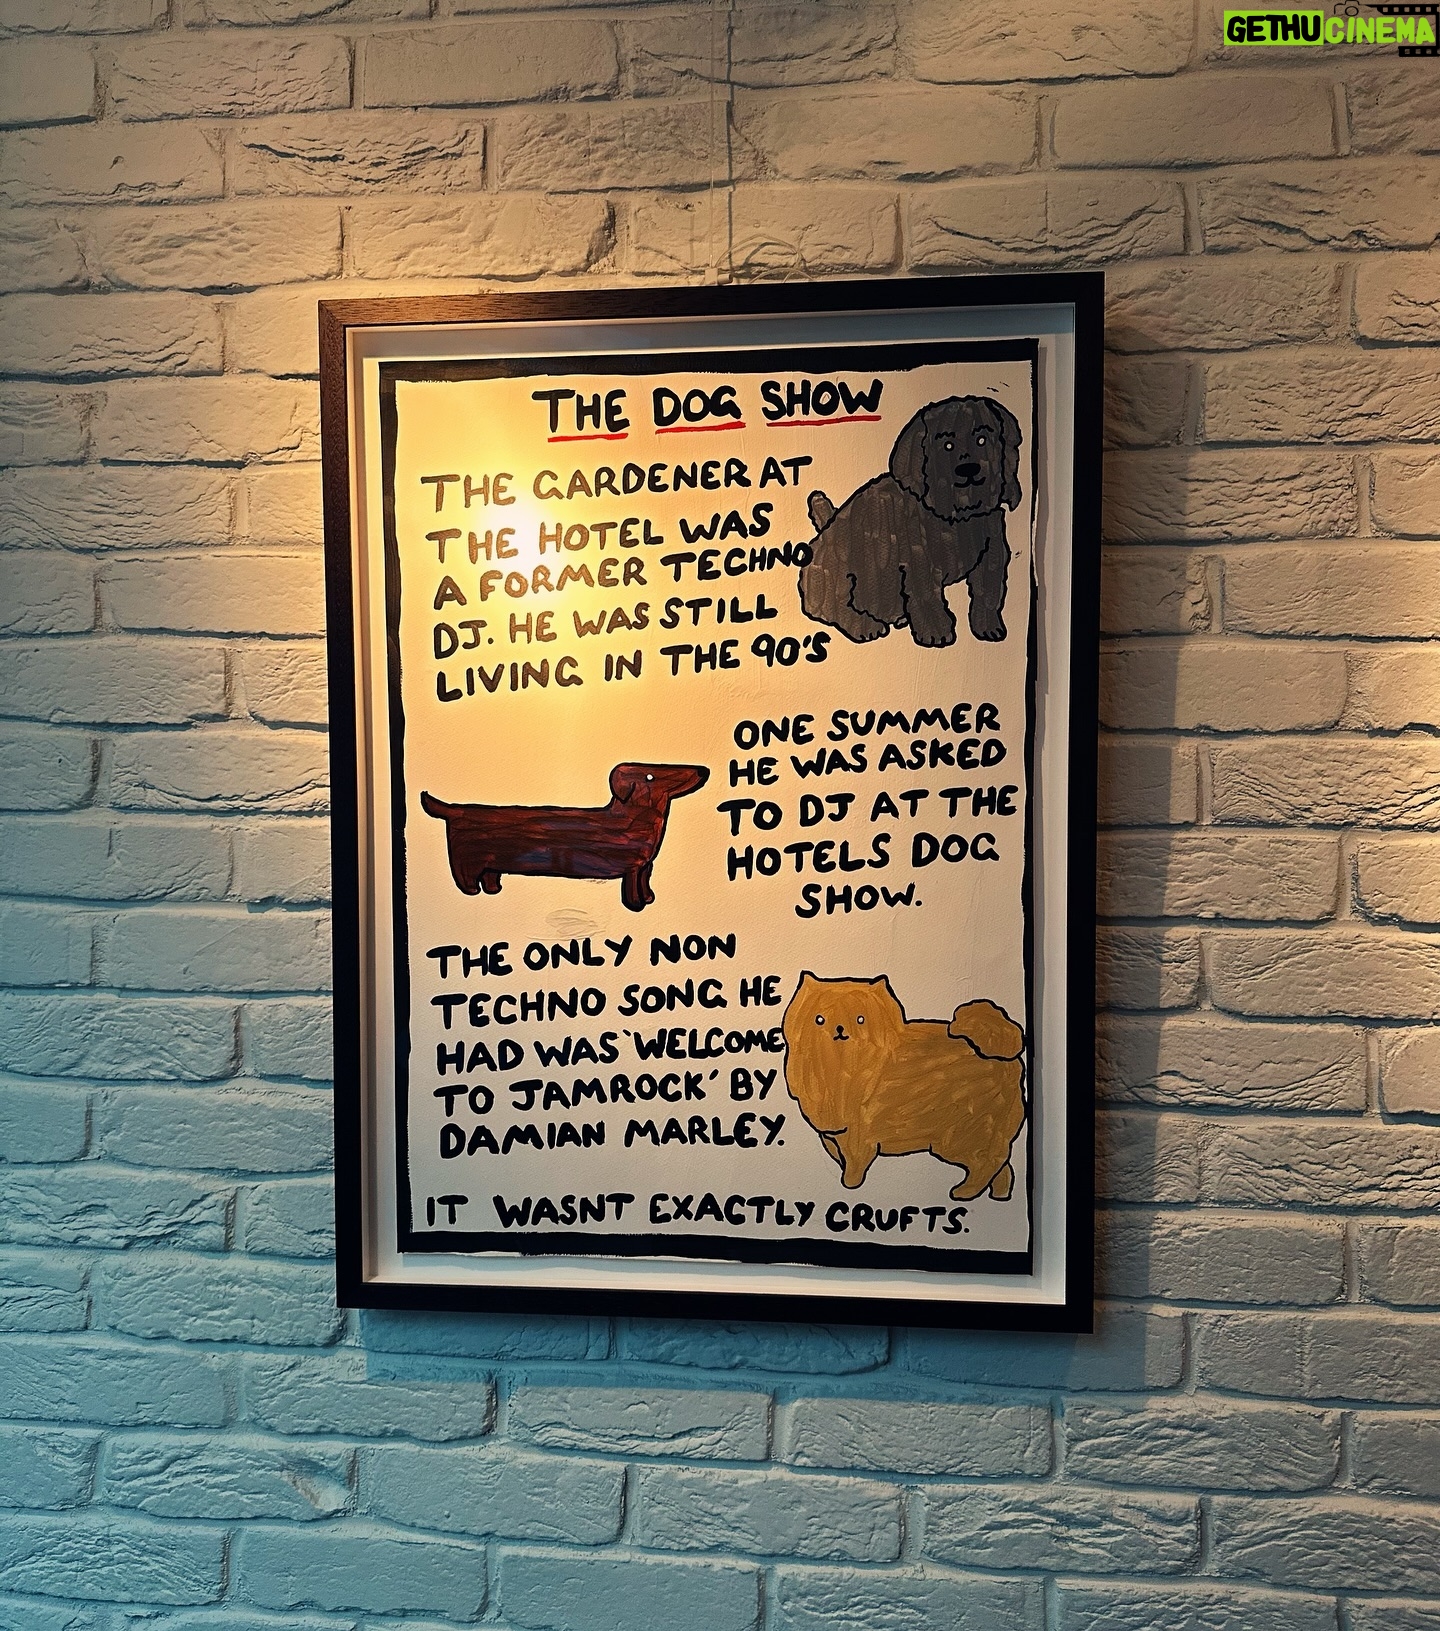 GETHUCINEMA
THE DOG SHOW
THE GARDENER AT
THE HOTEL WAS
A FORMER TECHNO
DJ. HE WAS STILL
LIVING IN THE 90'S
ONE SUMMER
HE WAS ASKED
TO DJ AT THE
HOTELS DOG
SHOW.
THE ONLY NON
TECHNO SONG HE
HAD WAS 'WELCOME
TO JAMROCK' BY
DAMIAN MARLEY.
IT WASNT EXACTLY CRUFTS.